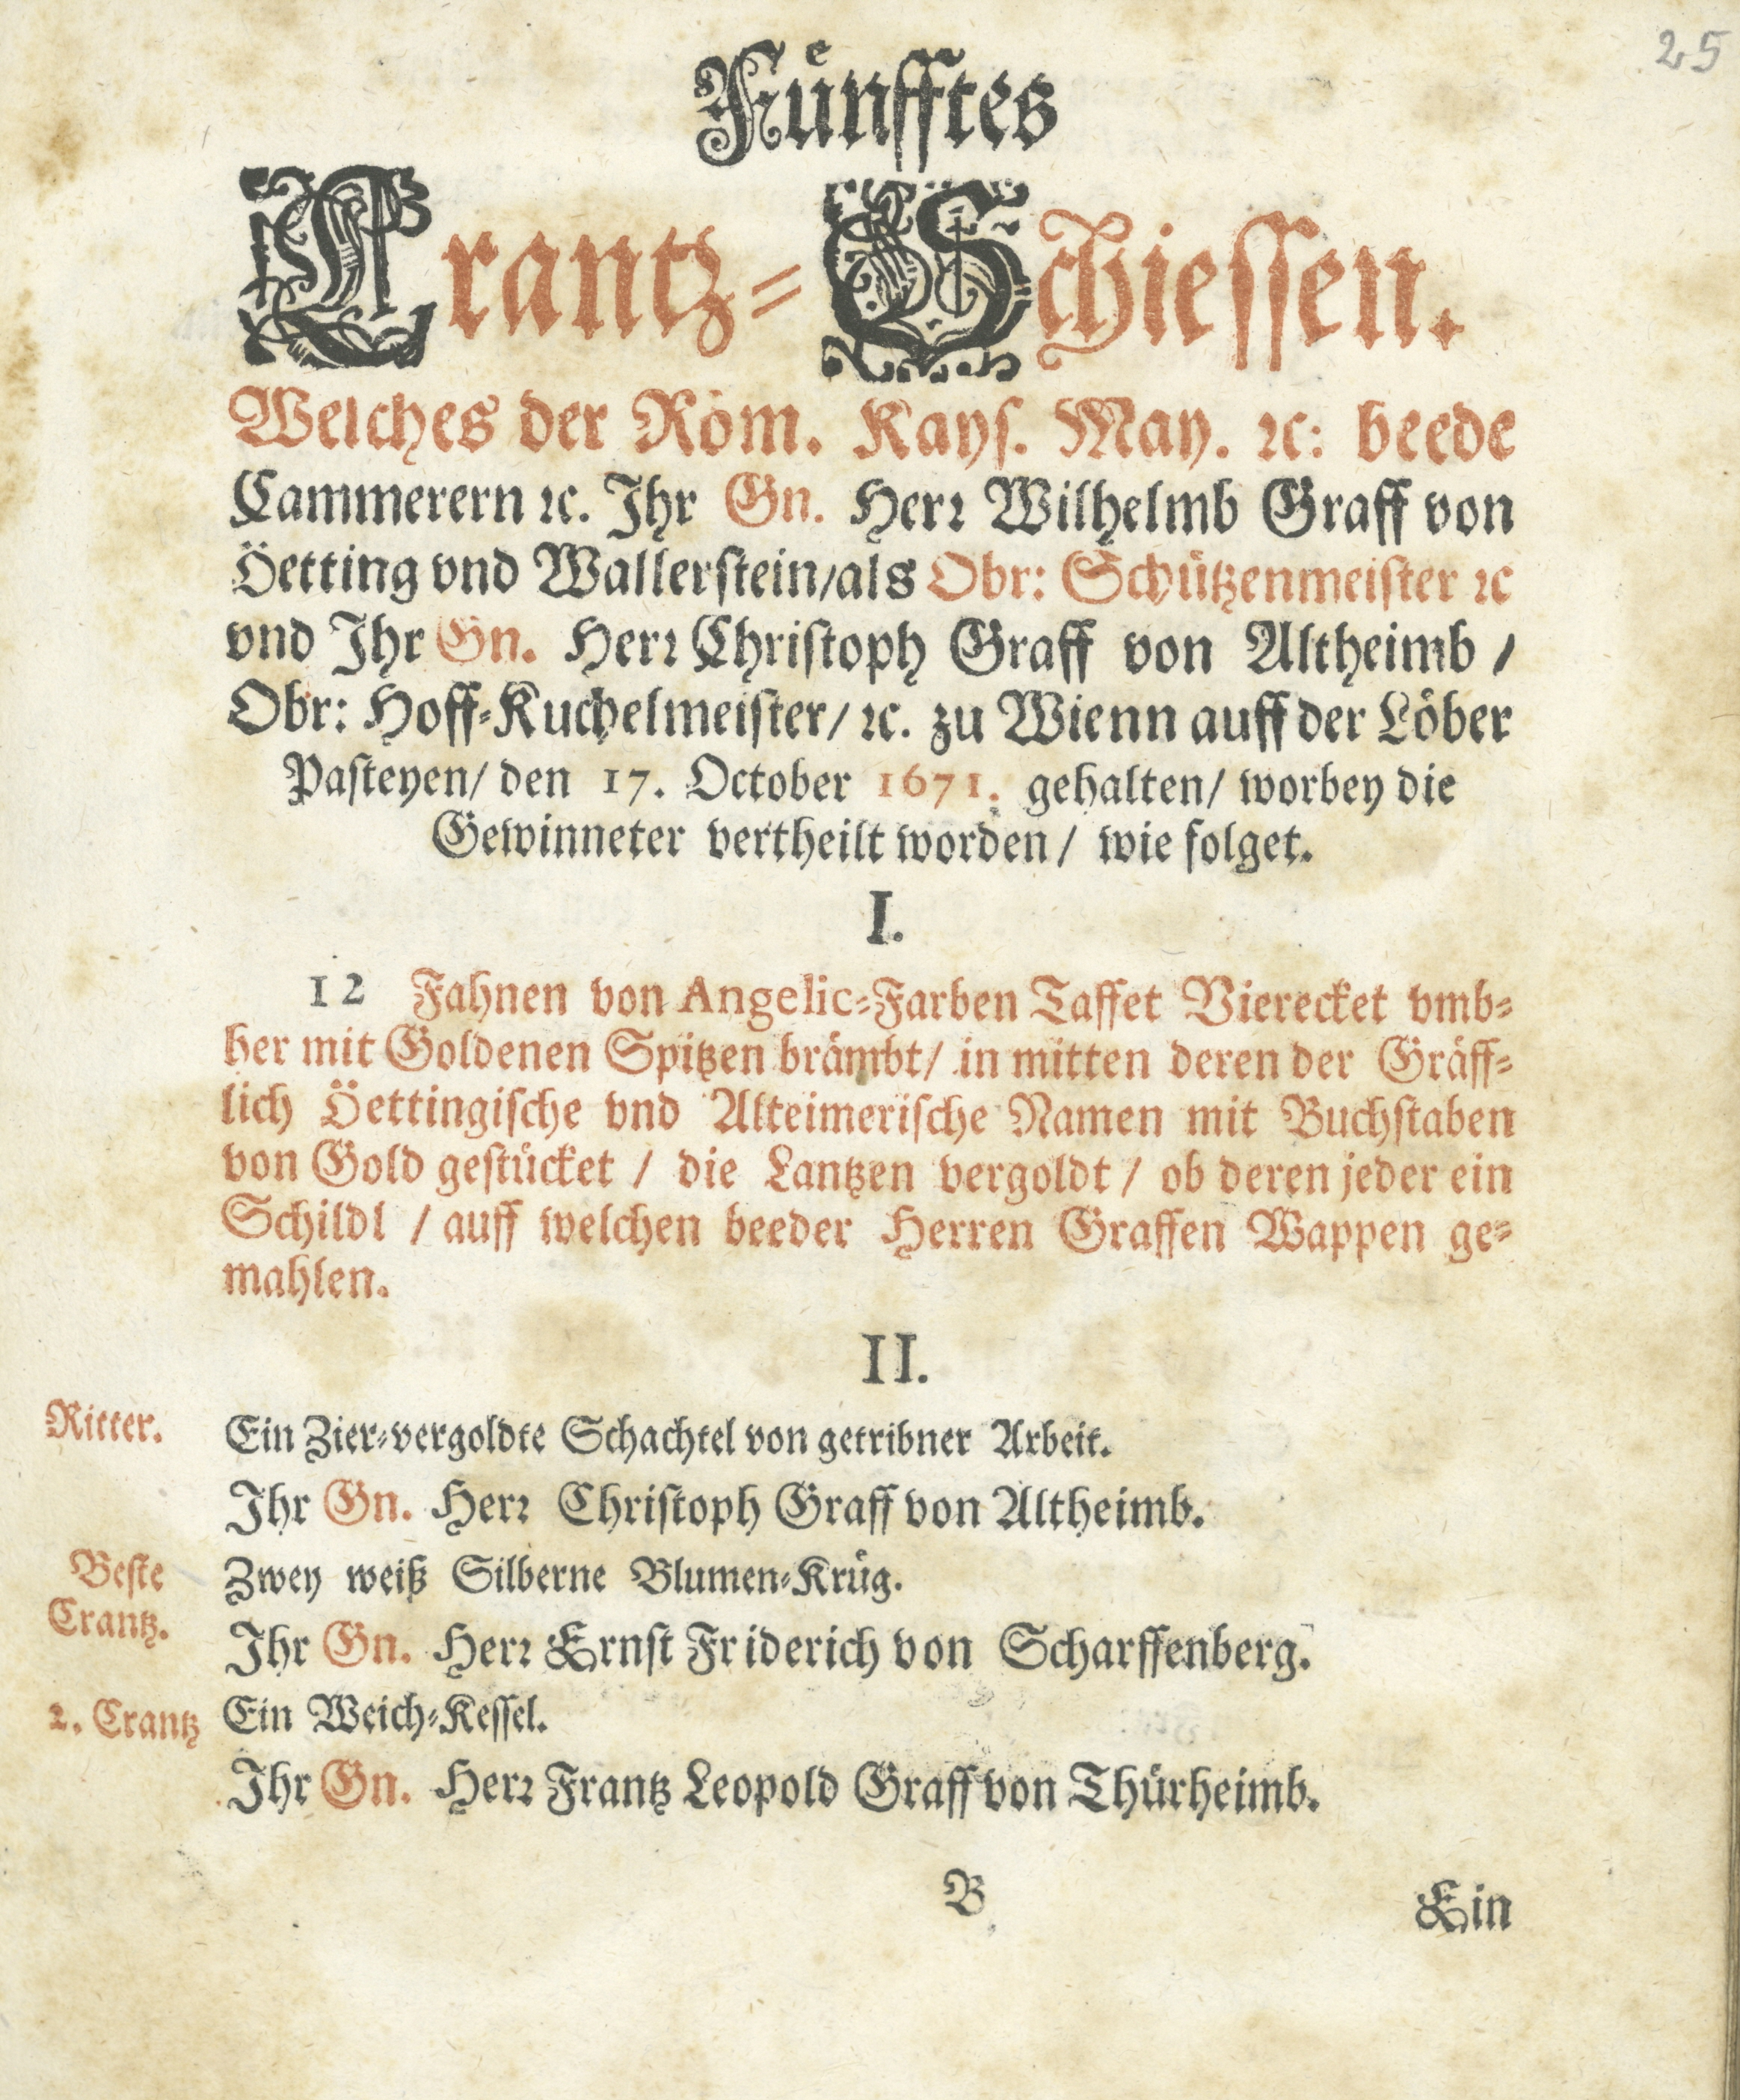 25
Fünfftes
Crantz-Schiessen.
Welches der Röm. Kays. May. ꝛc: beede
Cammerern ꝛc. Ihr Gn. Herꝛ Wilhelmb Graff von
Öetting vnd Wallerstein/als Obr: Schützenmeister ꝛc
vnd Ihr Gn. Herꝛ Christoph Graff von Altheimb /
Obr: Hoff-Kuchelmeister/ ꝛc. zu Wienn auff der Löber
Pasteyen/ den 17. October 1671. gehalten/ worbey die
Gewinneter vertheilt worden/ wie folget.
I.
12 Fahnen von Angelic-Farben Taffet Vierecket vmb-
her mit Goldenen Spitzen brämbt/ in mitten deren der Gräff-
lich Öettingische vnd Alteimerische Namen mit Buchstaben
von Gold gestücket / die Lantzen vergoldt / ob deren jeder ein
Schildl / auff welchen beeder Herren Graffen Wappen ge-
mahlen.
II.
Ritter. Ein Zier-vergoldte Schachtel von getribner Arbeit.
Ihr Gn. Herꝛ Christoph Graff von Altheimb.
Beste Zwey weiß Silberne Blumen-Krüg.
Crantz.
Ihr Gn. Herꝛ Ernst Friderich von Scharffenberg.
2. Crantz Ein Weich-Kessel.
Ihr Gn. Herꝛ Frantz Leopold Graff von Thürheimb.
B Ein